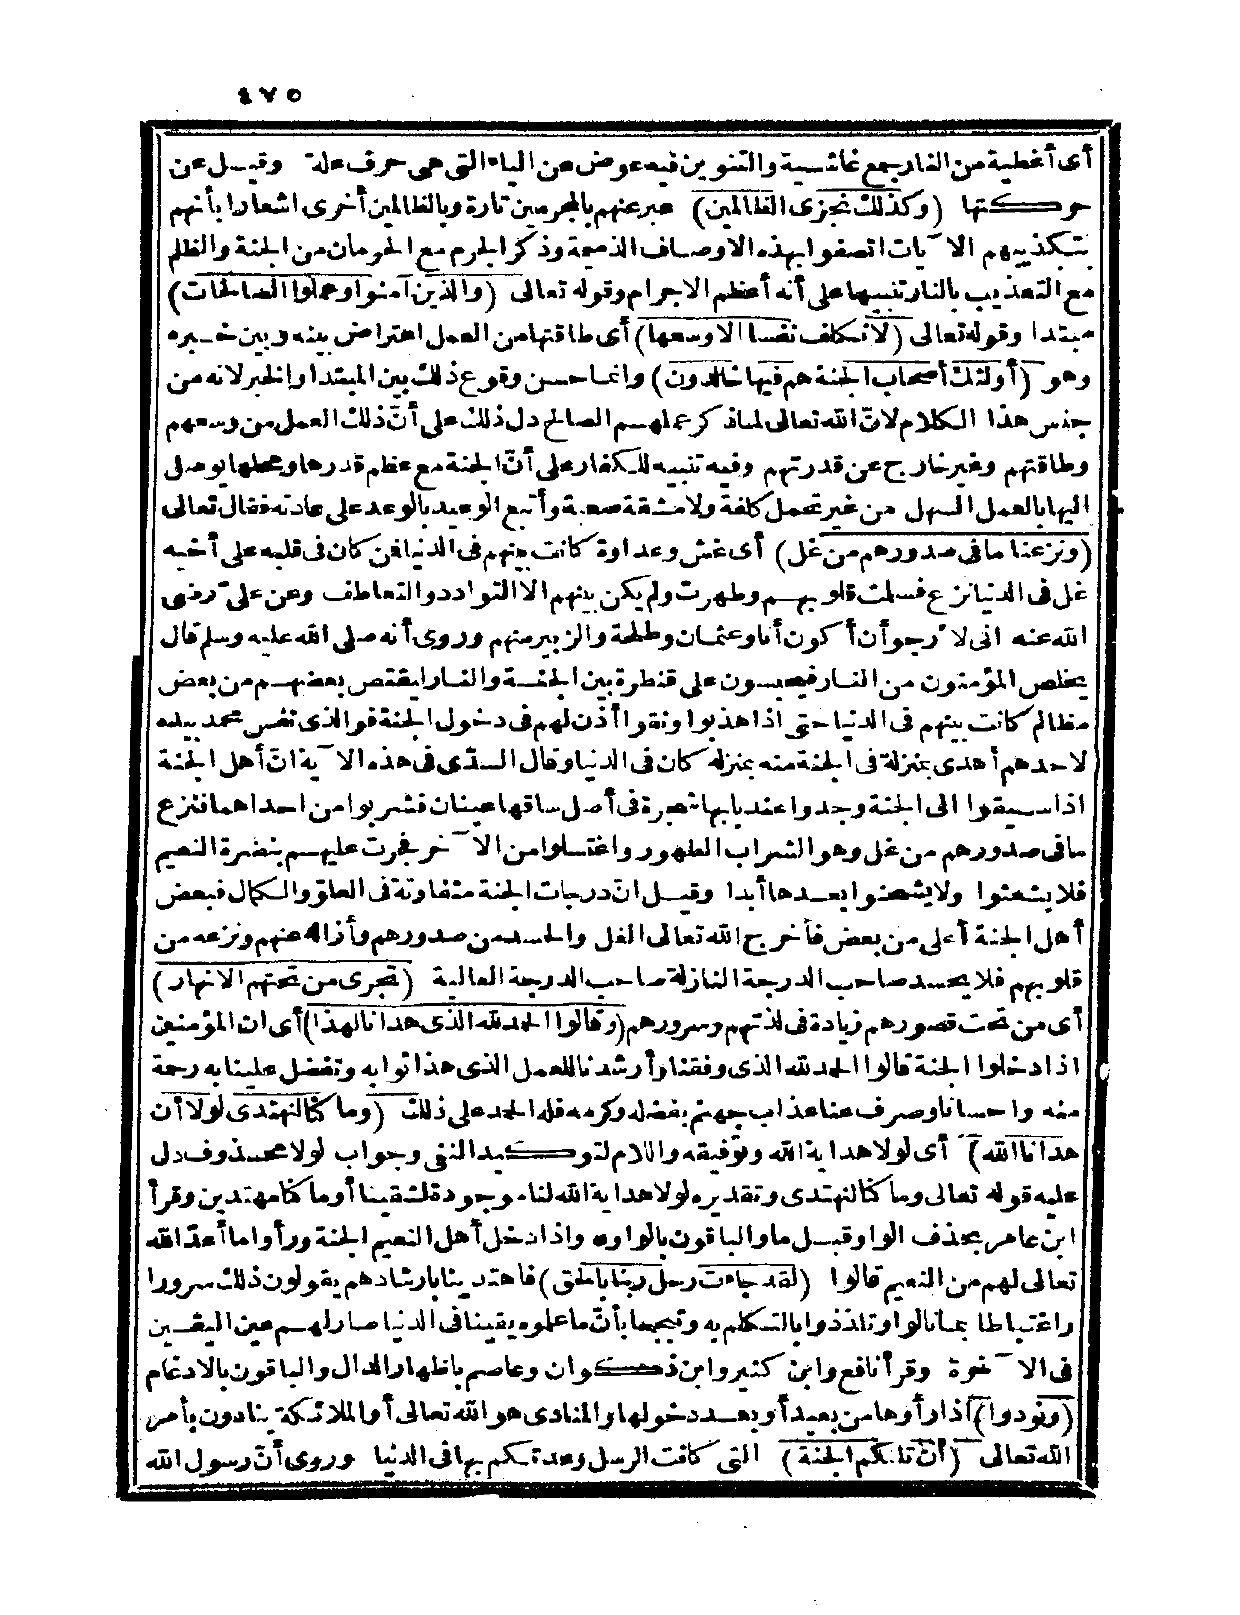 ٤٧٥
أى أغطية من النار جمع غاشية والتنوين فيه عوض عن الياء التى هى حرف علة وقيل عن
حركتها (وكذلك نجزى الظالمين) عبر عنهم بالمجرمين تارة وبالظالمين أخرى اشعارا بأنهم
بتكذيبهم الآيات اتصفوا بهذه الاوصاف الذميمة وذكر الجرم مع الحرمان من الجنة والظلم
مع التعذيب بالنار تنبيها على أنه أعظم الاجرام وقوله تعالى (والذين آمنوا وعملوا الصالحات)
مبتدا وقوله تعالى (لا نكلف نفسا الا وسعها) أى طاقتها من العمل اعتراض بينه وبين خبره
وهو (أولئك أصحاب الجنة هم فيها خالدون) وانما حسن وقوع ذلك بين المبتدا والخبر لانه من
جنس هذا الكلام لانّ الله تعالى لماذ كر عملهم الصالح دل ذلك على أنّ ذلك العمل من وسعهم
وطاقتهم وغير خارج عن قدرتهم وفيه تنبيه للكفار على أنّ الجنة مع عظم قدرها ومحلها يوصل
اليها بالعمل السهل من غير تحمل كلفة ولا مشقة صعبة وأتبع الوعيد بالوعد على عادته فقال تعالى
(ونزعنا ما فى صدورهم من غل) أى غش وعداوة كانت بينهم فى الدنيا فمن كان فى قلبه على أخيه
غل فى الدنيا نزع فسلمت قلوبهم وطهرت ولم يكن بينهم الا التوادد والتعاطف وعن علىّ رضى
الله عنه انى لارجو أن أكون أنا وعثمان وطلحة والزبير منهم وروى أنه صلى الله عليه وسلم قال
يخلص المؤمنون من النار فيحبسون على قنطرة بين الجنة والنار ليقتص بعضهم من بعض
مظالم كانت بينهم فى الدنيا حتى اذا هذبوا ونقوا أذن لهم فى دخول الجنة فوالذى نفس محمد بيده
لاحدهم أهدى بمنزلة فى الجنة منه بمنزله كان فى الدنيا وقال السدّى فى هذه الآية انّ أهل الجنة
اذا سيقوا الى الجنة وجدوا عند بابها شجرة فى أصل ساقها عينان فشربوا من احداهما فنزع
ما فى صدورهم من غل وهو الشراب الطهور واغتسلوا من الآخر فجرت عليهم بنضرة النعيم
فلا يشعثوا ولا يشحنوا بعدها أبدا وقيل انّ درجات الجنة متفاوتة فى العلوّ والكمال فبعض
أهل الجنة أعلى من بعض فأخرج الله تعالى الغل والحسد من صدورهم وأزاله عنهم ونزعه من
قلوبهم فلا يحسد صاحب الدرجة النازلة صاحب الدرجة العالية (تجرى من تحتهم الانهار)
أى من تحت قصورهم زيادة فى لذتهم وسرورهم (وقالوا الحمد لله الذى هدانا لهذا) أى ان المؤمنين
اذا دخلوا الجنة قالوا الحمد لله الذى وفقنا وأرشدنا للعمل الذى هذا ثوابه وتفضل علينا به رحمة
منه واحسانا وصرف عنا عذاب جهنم بفضله وكرمه فله الحمد على ذلك (وما كنا لنهتدى لولا أن
هدانا الله) أى لولا هداية الله وتوفيقه واللام لتوكيد النفى وجواب لولا محذوف دل
عليه قوله تعالى وما كنا لنهتدى وتقديره لولا هداية الله لنا موجودة لشقينا أو ما كنا مهتدين وقرأ
ابن عامر بحذف الواو قبل ما والباقون بالواو واذا دخل أهل النعيم الجنة ورأوا ما أعدّ الله
تعالى لهم من النعيم قالوا (لقد جاءت رسل ربنا بالحق) فاهتدينا بارشادهم يقولون ذلك سرورا
واغتباطا بما نالوا وتلذذوا بالتكلم به وتبجحا بأنّ ما علموه يقينا فى الدنيا صار لهم عين اليقين
فى الآخرة وقرأ نافع وابن كثير وابن ذكوان وعاصم باظهار الدال والباقون بالادغام
(ونودوا) اذا رأوها من بعيد أو بعد دخولها والمنادى هو الله تعالى أو الملائكة ينادون بأمر
الله تعالى (أنّ تلكم الجنة) التى كانت الرسل وعدتكم بها فى الدنيا وروى أنّ رسول الله